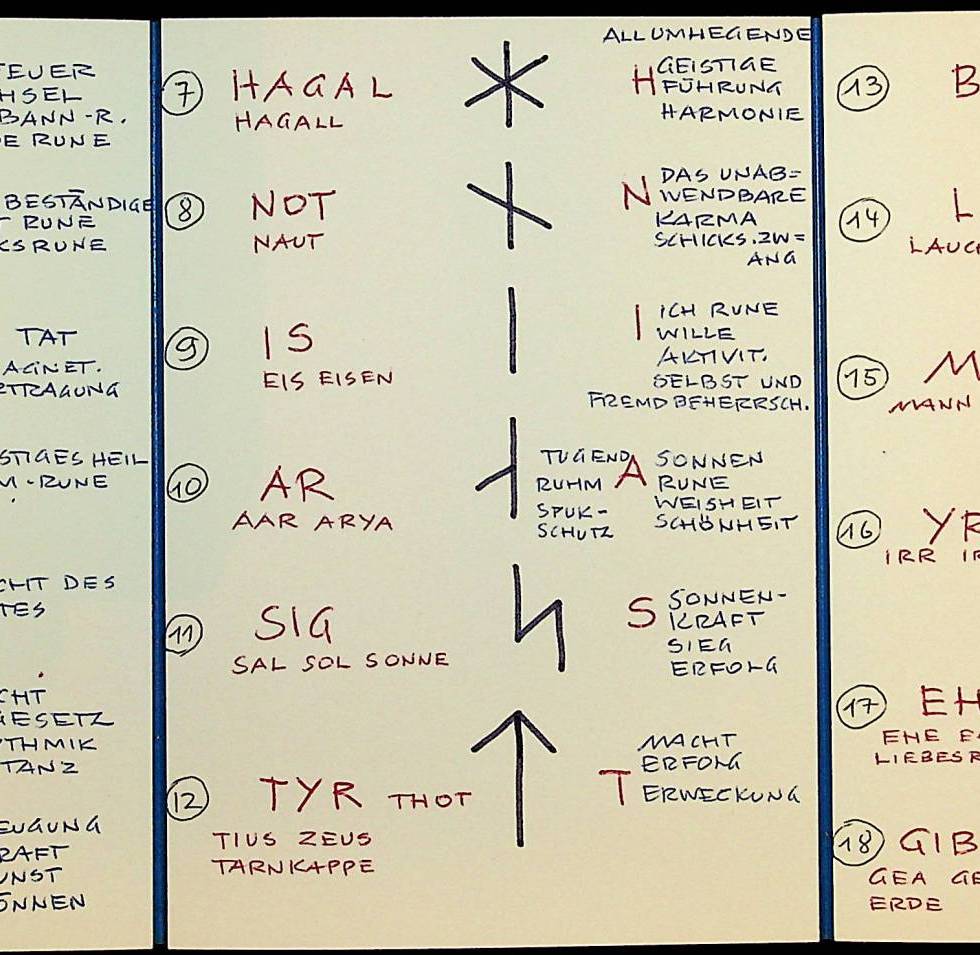 TEUER
HSEL
BANN-R.
DE RUNE
BESTÄNDIGE
T RUNE
KSRUNE
TAT
AGNET.
RTRAGUNG
STIGES HEIL
M-RUNE
CHT DES
TES
CHT
GESETZ
YTHMIK
TANZ
EUGUNG
RAFT
UNST
ÖNNEN
7 HAGAL
HAGALL
ALLUMHEGENDE
H GEISTIGE
FÜHRUNG
HARMONIE
8 NOT
NAUT
N DAS UNAB=
WENDBARE
KARMA
SCHICKS.ZW=
ANG
9 IS
EIS EISEN
I ICH RUNE
WILLE
AKTIVIT.
SELBST UND
FREMDBEHERRSCH.
10 AR
AAR ARYA
TUGEND
RUHM
SPUK-
SCHUTZ
A SONNEN
RUNE
WEISHEIT
SCHÖNHEIT
11 SIG
SAL SOL SONNE
S SONNEN-
KRAFT
SIEG
ERFOLG
12 TYR THOT
TIUS ZEUS
TARNKAPPE
MACHT
ERFOLG
T ERWECKUNG
13 B
14 L
LAUC
15 M
MANN
16 YR
IRR IR
17 EH
EHE E
LIEBESR
18 GIB
GEA GE
ERDE